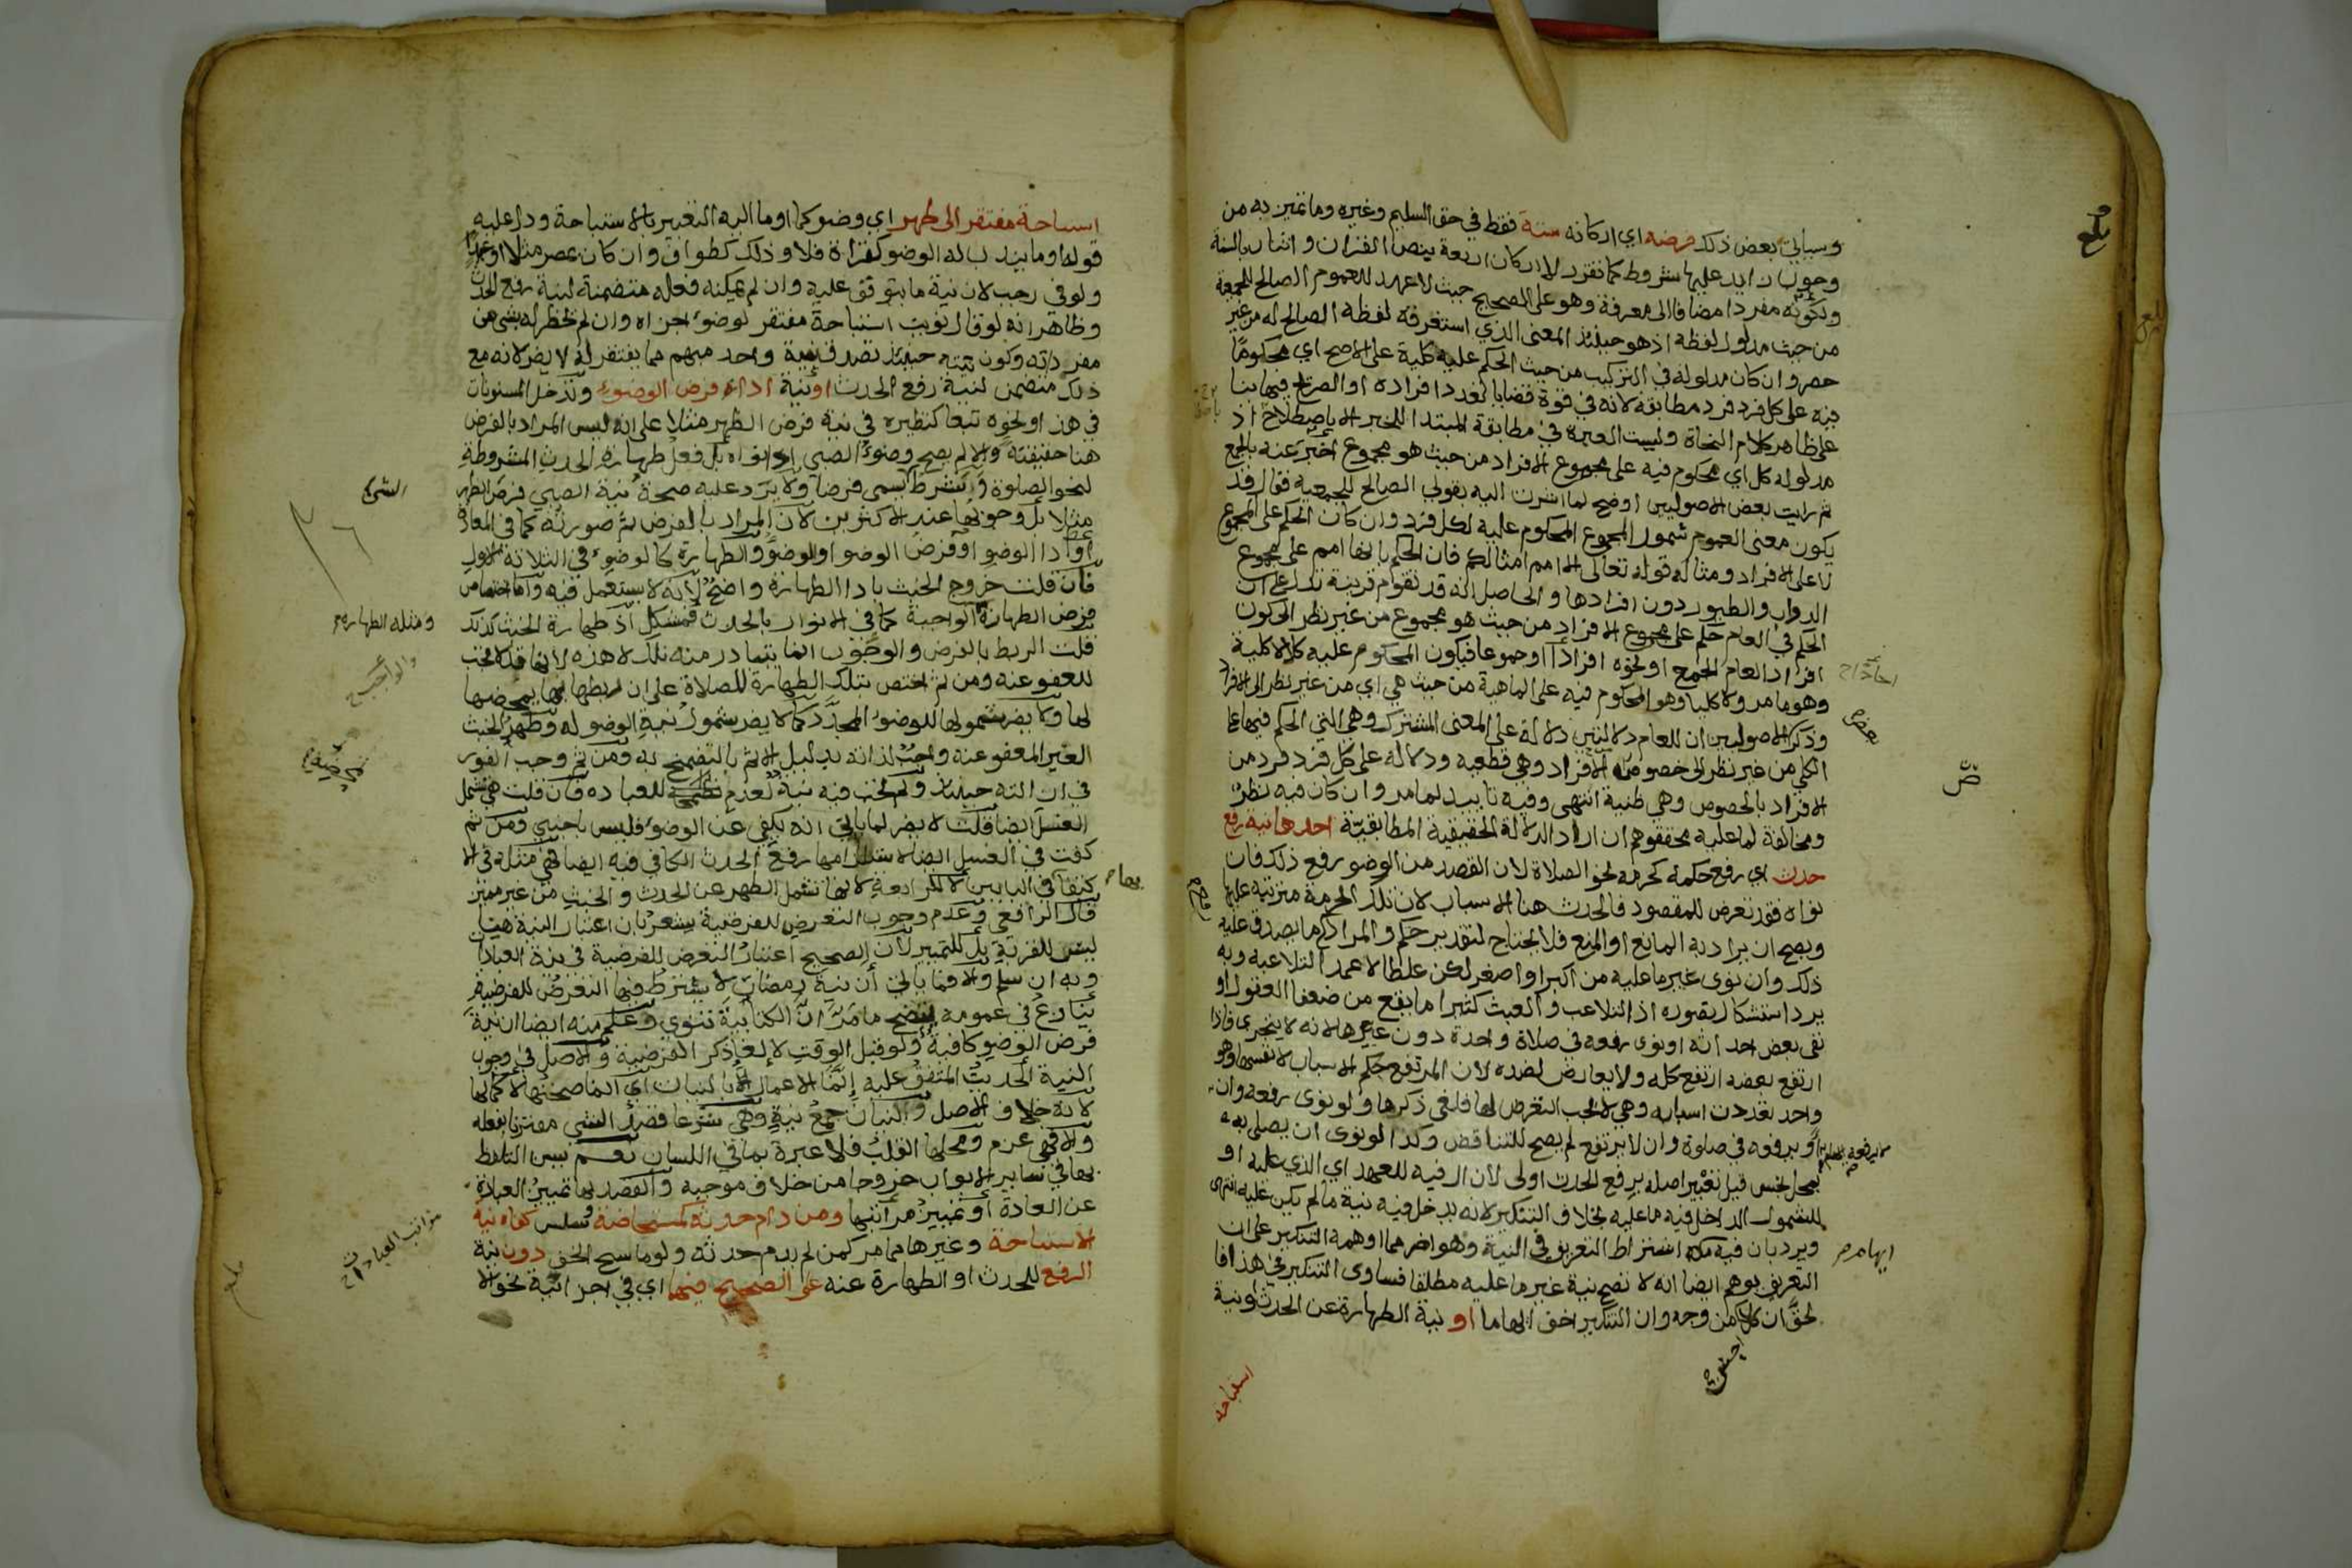 وسياتي بعض ذلك فرضه اي اركانه ستة فقط في حق السليم وغيره وما تميز به من
وجوب زايد عليها شروط كما تقرر لا اركان اربعة بنص القران واثنان بالسنة
ولكونه مفردا مضافا الى معرفة وهو على الصحيح حيث لا عهد للعموم الصالح للجمعية
من حيث مدلول لفظه اذ هو حينئذ المعنى الذي استغرقه لفظه الصالح له من غير
حصر وان كان مدلوله في التركيب من حيث الحكم عليه كلية على الاصح اي محكوما
فيه على كل فرد فرد مطابقة لانه في قوة قضايا بعدد افراده او الصريح فيها بنا
على ظاهر كلام النحاة وليست العبرة في مطابقة المبتدا للخبر الا باصطلاح اذ
مدلوله كل اي محكوم فيه على مجموع الافراد من حيث هو مجموع اخبر عنه بالجمع
ثم رايت بعض الاصوليين اوضح لما اشرت اليه بقولي الصالح للجمعية فقال قد
يكون معنى العموم شمول المجموع المحكوم عليه لكل فرد وان كان الحكم على المجموع
لا على الافراد ومثاله قوله تعالى الا امم امثالكم فان الحكم بانها امم على مجموع
الدواب والطيور دون افرادها والحاصل انه قد تقوم قرينة تدل على ان
الحكم في العام حكم على مجموع الافراد من حيث هو مجموع من غير نظر الى كون
افراد العام الجمع او نحوه افرادا او جموعا فيكون المحكوم عليه كلا لا كلية
وهو ما مر ولا كليا وهو المحكوم فيه على الماهية من حيث هي اي من غير نظر الى الافراد
وذكر الاصوليين ان للعام دلالتين دلالة على المعنى المشترك وهي التي الحكم فيها على
الكلي من غير نظر الى خصوص الافراد وهي قطعية ودلالة على كل فرد فرد من
الافراد بالخصوص وهي ظنية انتهى وفيه تاييد لما مر وان كان فيه نظر
ومخالفة لما عليه محققوهم ان اراد الدلالة الحقيقية المطابقية احدها نية رفع
حدث اي رفع حكمه كحرمة نحو الصلاة لان القصد من الوضو رفع ذلك فان
نواه فقد تعرض للمقصود فالحدث هنا الاسباب لان تلك الحرمة مترتبة عليها
ويصح ان يراد به المانع او المنع فلا يحتاج لتقدير حكم والمراد ما يصدق عليه
ذلك وان نوى غير ما عليه من اكبر او اصغر لكن غلطا لا عمدا لتلاعبه وبه
يرد استشكال تصوره اذ التلاعب والعبث كثيرا ما يقع من ضعفا العقول او
نفى بعض احداثه او نوى رفعه في صلاة واحدة دون غيرها لانه لا يتجزى فاذا
ارتفع بعضه ارتفع كله ولا يعارض بضده لان المرتفع حكم الاسباب لا نفسها وهو
واحد تعددت اسبابه وهي لا يجب التعرض لها فلغى ذكرها ولو نوى رفعه وان
او يرفعه في صلوة وان لا يرتفع لم يصح للتناقض وكذا لو نوى ان يصلي به
بمحل نجس قيل تغيير اصله برفع الحدث اولى لان ال فيه للعهد اي الذي عليه او
للشمول الداخل فيه ما عليه بخلاف التنكير لانه يدخل فيه نية ما لم يكن عليه انتهى
ويرد بان فيه اشتراط التعريف في النية وهو اضر مما اوهمه التنكير على ان
التعريف يوهم ايضا انه لا تصح نية غير ما عليه مطلقا فساوى التنكير في هذا فا
لحق ان كلا من وجه وان التنكير اخف ايهاما او نية الطهارة عن الحدث او نية
استباحة
استباحة مفتقر الى طهر اي وضو كما اوما اليه التعبير بالاستباحة ودل عليه
قوله او ما يندب له الوضو كقراة فلا وذلك كطواف وان كان بمصر مثلا او عيد
ولو في رجب لان نية ما يتوقف عليه وان لم يمكنه فعله متضمنة لنية رفع الحدث
وظاهر انه لو قال نويت استباحة مفتقر لوضو اجزاه وان لم يخطر له شي من
مفرداته وكون نيته حينئذ تصدق بنية واحد مبهم مما يفتقر له لا يضر لانه مع
ذلك متضمن لنية رفع الحدث او نية اداء فرض الوضوء وتدخل المسنونات
في هذا ونحوه تبعا كنظيره في نية فرض الظهر مثلا على انه ليس المراد بالفرض
هنا حقيقته والا لم يصح وضوء الصبي بل فعل طهارة الحدث المشروطة
لنحو الصلوة والشرط يسمى فرضا ولا يرد عليه صحة نية الصبي فرض الظهر
مثلا بل وجوبها عند الاكثرين لان المراد بالفرض ثم صورته كما في المعادة
او ادا الوضو او فرض الوضو او الوضو والطهارة كالوضو في الثلاثة الاول
فان قلت خروج الخبث بادا الطهارة واضح لانه لا يستعمل فيه واما اختصاص
فرض الطهارة الواجبة كما في الانوار بالحدث فمشكل اذ طهارة الخبث كذلك
قلت الربط بالفرض والوجوب انما يتبادر منه تلك لا هذه لانها قد لا تجب
للعفو عنه ومن ثم اختص بتلك الطهارة للصلاة على ان ربطها بها يمحضها
لها ولا يضر شمولها للوضو المجدد كما لا يضر شمول نية الوضو له وطهر الخبث
الغير المعفو عنه واجب لذاته بدليل الاثم بالتضمخ به ومن ثم وجب الفور
في ازالته حينئذ ولم تجب فيه نية لعدم للعبادة فان قلت هي تشمل
الغسل ايضا قلت لا يضر لما ياتي انه يكفي عن الوضو فليس باجنبي ومن ثم
كفت في الغسل ايضا لاستلزامها رفع الحدث الكافي فيه ايضا فهي مثله في الا
كتفا في البابين لا المرادفة لانها تشمل الطهر عن الحدث والخبث من غير مميز
قال الرافعي وعدم وجوب التعرض للفرضية يشعر بان اعتبار النية هنا
ليس للقربة بل للتمييز لان الصحيح اعتبار التعرض للفرضية في نية العبادا
وبه ان سلم والا فما ياتي ان نية رمضان لا يشترط فيها التعرض للفرضية
ينازع في عمومه يتضح ما مر ان الكتابية تنوي وعلم منه ايضا ان نية
فرض الوضو كافية ولو قبل الوقت لالغا ذكر الفرضية والاصل في وجوب
النية الحديث المتفق عليه انما الاعمال بالنيات اي انما صحتها لا كمالها
لانه خلاف الاصل والنيات جمع نية وهي شرعا قصد الشي مقترنا بفعله
والا فهي عزم ومحلها القلب فلا عبرة بما في اللسان نعم يسن التلفظ
بها في ساير الابواب خروجا من خلاف موجبه والقصد بها تمييز العبادة
عن العادة او تمييز مراتبها ومن دام حدثه كمستحاضة وسلس كفاه نية
الاستباحة وغيرها مما مر كمن لم يدم حدثه ولو ماسح الخف دون نية
الرفع للحدث او الطهارة عنه على الصحيح فيهما اي في اجزا نية نحو الا